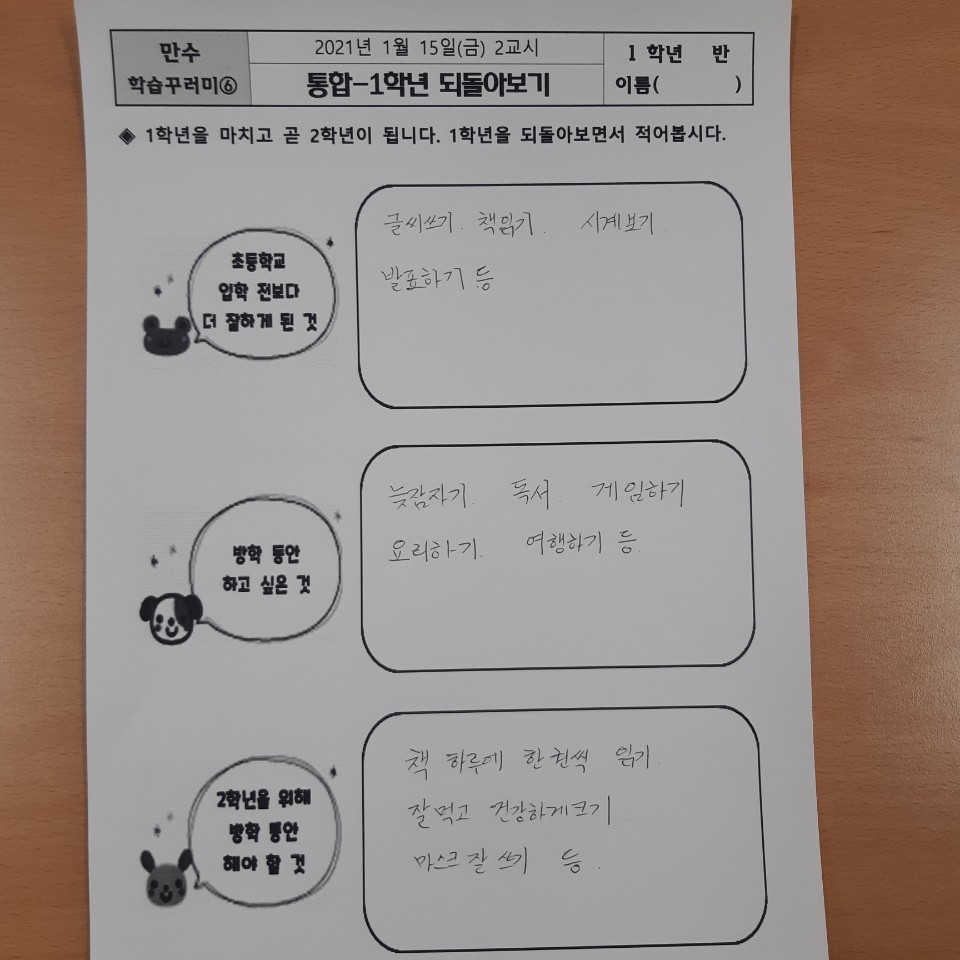 만수
학습꾸러미⑥
2021년 1월 15일(금) 2교시
통합-1학년 되돌아보기
1 학년 반
이름( )
◈ 1학년을 마치고 곧 2학년이 됩니다. 1학년을 되돌아보면서 적어봅시다.
초등학교
입학 전보다
더 잘하게 된 것
글씨쓰기. 책읽기. 시계보기
발표하기 등
방학 동안
하고 싶은 것
늦잠자기. 독서. 게임하기
요리하기. 여행하기 등.
2학년을 위해
방학 동안
해야 할 것
책 하루에 한권씩 읽기.
잘먹고 건강하게크기
마스크 잘 쓰기 등.